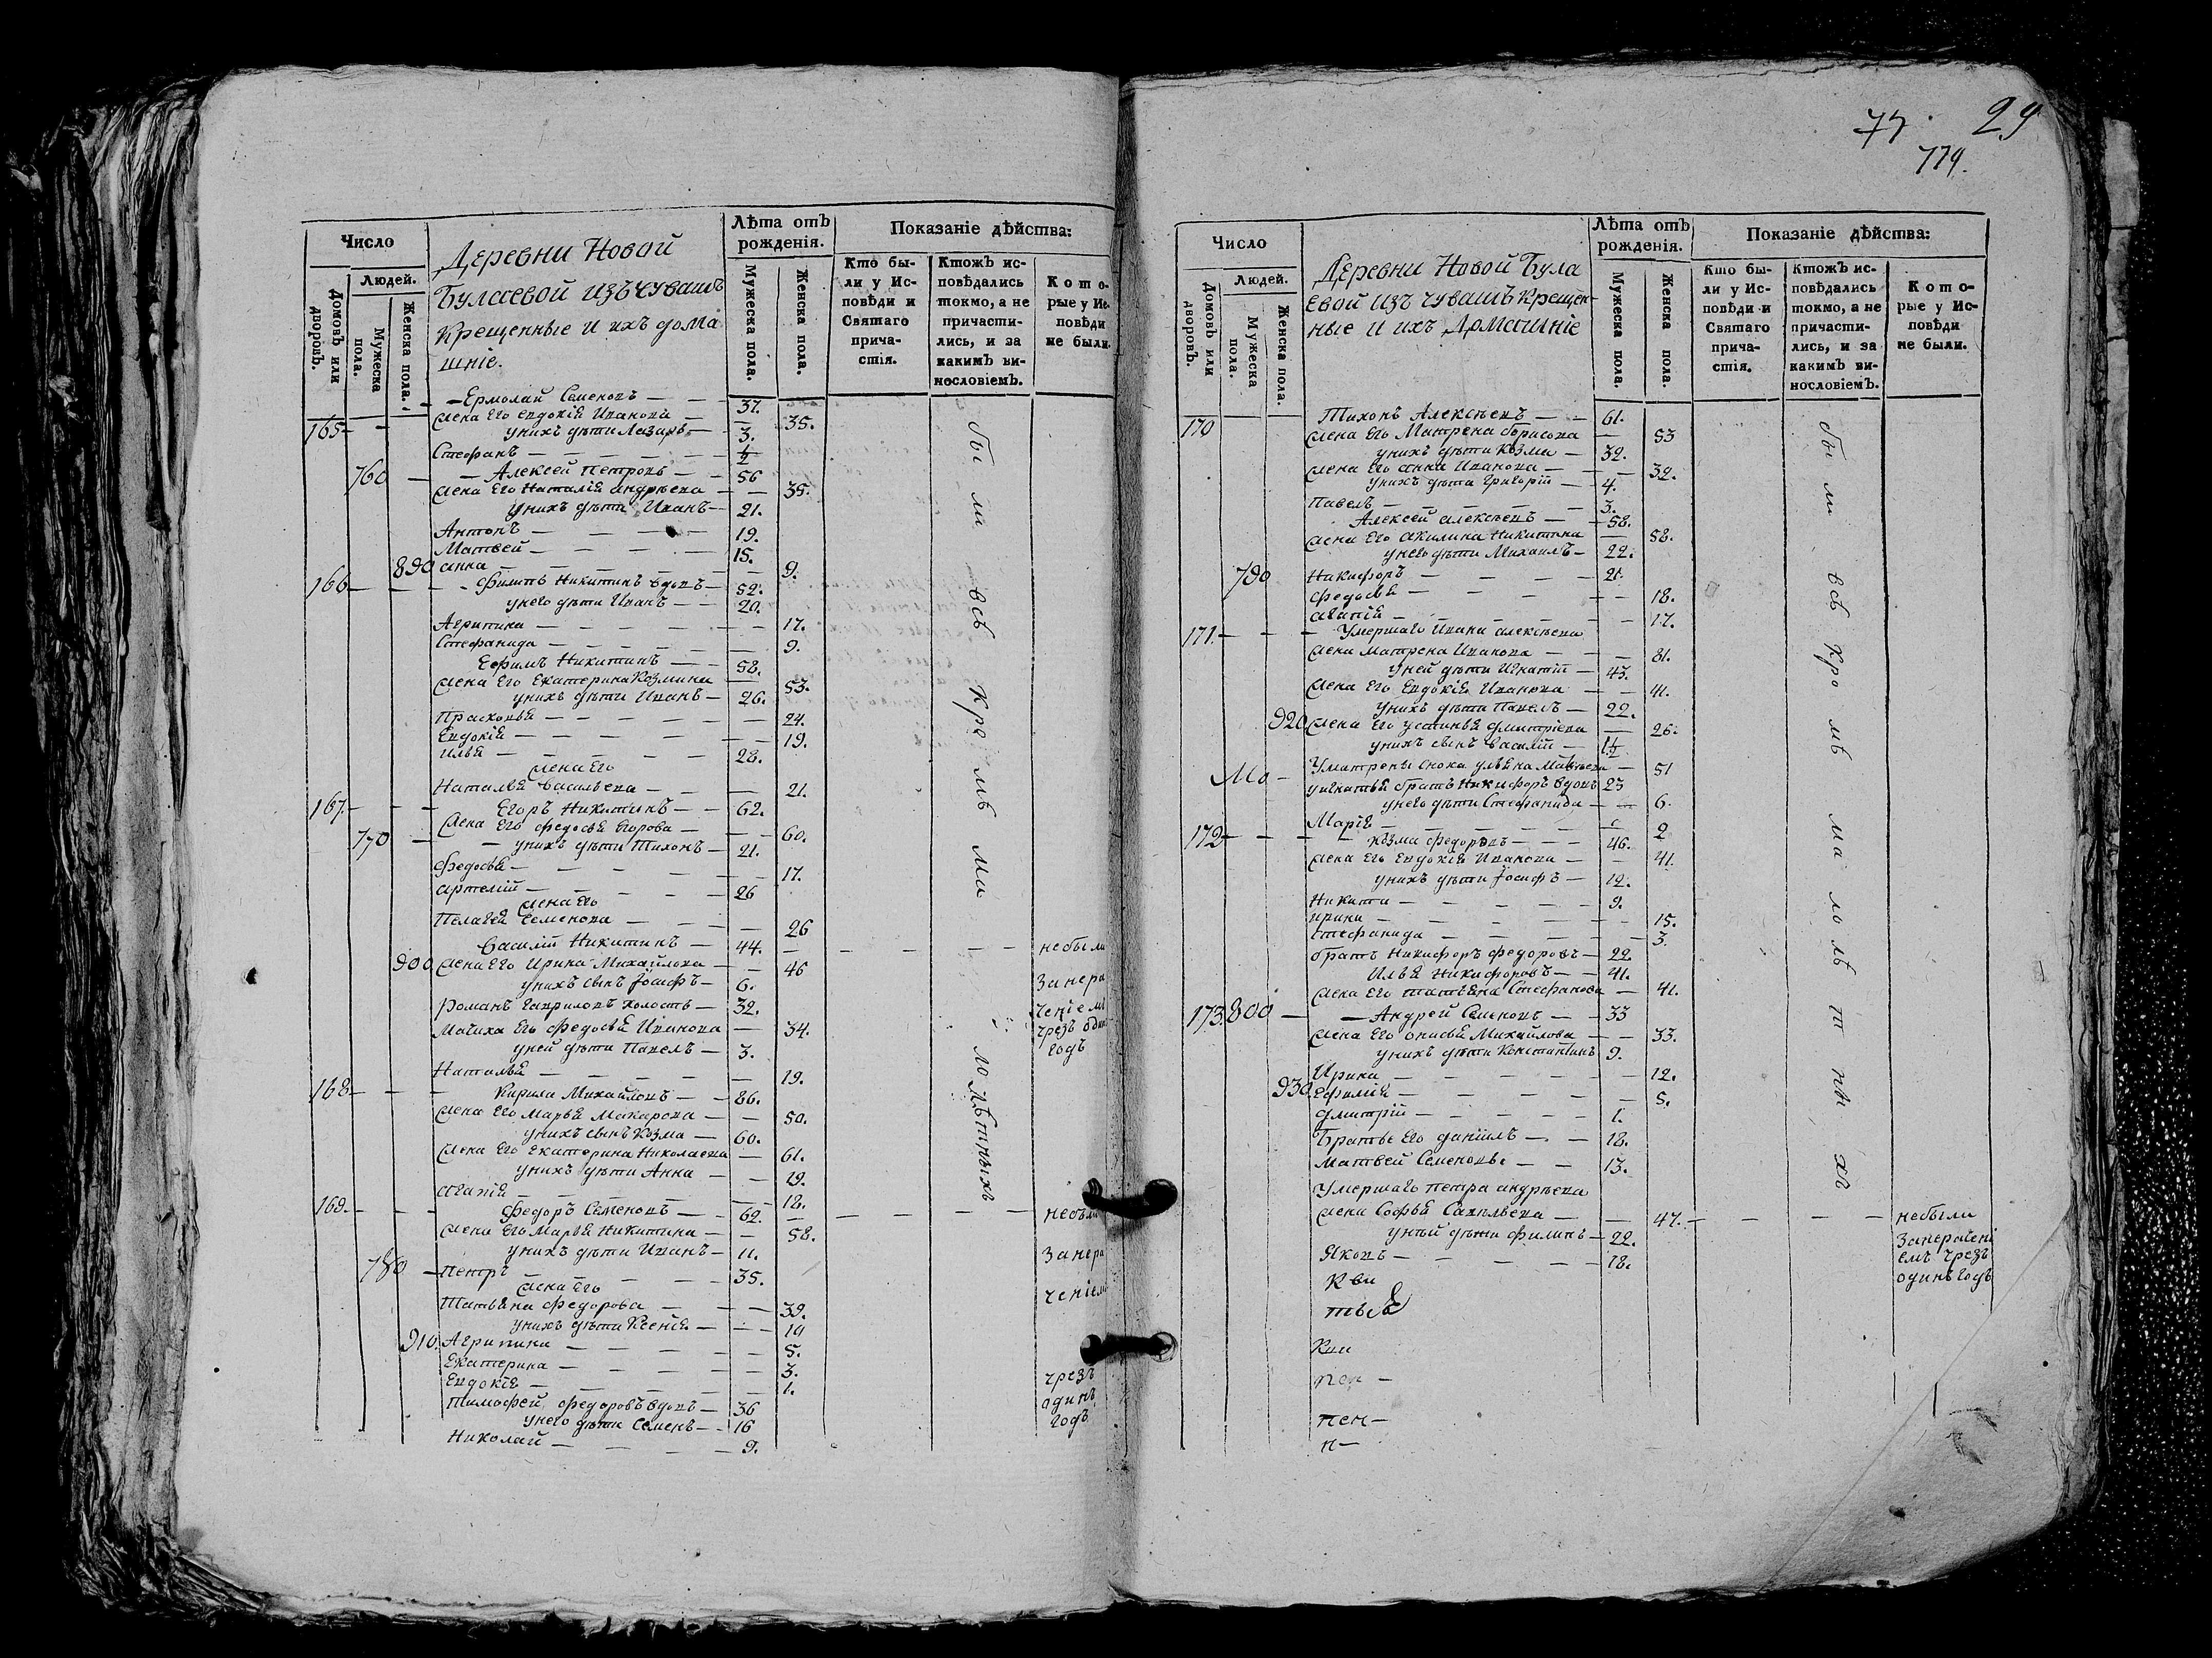 Число
Людей.
Домовъ или дворовъ.
Мужеска пола.
Женска пола.
Деревни Новой
Булаевой изъ чувашъ
крещенные и ихъ дома
шніе.
Лѣта отъ рожденія.
Мужеска пола.
Женска пола.
Показаніе дѣйства:
Кто бы-
ли у Ис-
повѣди и
Святаго
прича-
стія.
Ктожъ ис-
повѣдались
токмо, а не
причасти-
лись, и за
какимъ ви-
нословіемъ.
Кото-
рые у Ис-
повѣди
не были.
— Ермолай Семеновъ — — 37.
165 — — жена его Евдокія Иванова — 35.
у нихъ дѣти Лазарь — 3.
Стефанъ — — — — ½
760 — — Алексей Петровъ — — 56
жена его Наталія Андрѣева — — 35.
у нихъ дѣти Иванъ — 21.
Антонъ — — — — 19.
Матвей — — — — 15.
890 Анна — — — — 9.
166 — — — Филипъ Никитинъ вдовъ — 52.
у него дѣти Иванъ — — 20.
Агрипина — — — — 17.
Стефанида — — — — 9.
Ефимъ Никитинъ — — 58.
жена его Екатерина Козмина — 53.
у нихъ дѣти Иванъ — 26.
Прасковья — — — — 24.
Евдокія — — — — 19.
Илья — — — — 28.
жена его
Наталья Васильева — — — 21.
167. — — — Егоръ Никитинъ — — 62.
жена его Федосья Егорова — — — 60.
770 — — у нихъ дѣти Тихонъ — 21.
Федосья — — — — 17.
Артемій — — — — 26
жена его
Пелагея Семенова — — — 26
Василій Никитинъ — 44. — — — — не были
900. жена его Ирина Михайлова — — 46
у нихъ сынъ Іосифъ — 6.
за нера
Романъ Гавриловъ холостъ — 32.
ченіемъ
Мачиха его Федосья Иванова — 34.
чрезъ один
у ней дѣти Павелъ — 3.
годъ
Наталья — — — — 19.
168 — — — Кирила Михайловъ — — 86.
жена его Марья Макарова — — 50.
у нихъ сынъ Козма — 60.
жена его Екатерина Николаева — 61.
у нихъ дѣти Анна — — 19.
Агапія — — — — 18.
169. — — — Федоръ Семеновъ — — 62. — — — — не были
жена его Марья Никитина — — 58.
у нихъ дѣти Иванъ — 11.
за нера
780 — Петръ — — — — 35.
жена его
ченіемъ
Татьяна Федорова — — — 39.
у нихъ дѣти Ксенія — — — 19
910. Агрипина — — — — 5.
Екатерина — — — — 3.
чрезъ
Евдокія — — — — 1.
один
Тимофей Федоровъ вдовъ — 36
годъ
у него дѣти Семенъ — 16
Николай — — — — 9.
бы ли всѣ кро мѣ ма лолѣтныхъ
77 29
779.
Число
Людей.
Домовъ или дворовъ.
Мужеска пола.
Женска пола.
Деревни Новой Була
евой изъ чувашъ крещен-
ные и ихъ домашніе
Лѣта отъ рожденія.
Мужеска пола.
Женска пола.
Показаніе дѣйства:
Кто бы-
ли у Ис-
повѣди и
Святаго
прича-
стія.
Ктожъ ис-
повѣдались
токмо, а не
причасти-
лись, и за
какимъ ви-
нословіемъ.
Кото-
рые у Ис-
повѣди
не были.
170 Тихонъ Алексѣевъ — — 61.
жена его Матрена Борисова — 53
у нихъ дѣти Козма — 32.
жена его Анна Иванова — — 32.
у нихъ дѣти Григорій — 4.
Павелъ — — — — 3.
Алексей Алексѣевъ — — 58.
жена его Акилина Никитина — 58.
у него дѣти Михаилъ — 22.
790 Никифоръ — — — — 21.
Федосья — — — — 18.
Агапія — — — — 17.
171. — — — Умершаго Ивана Алексѣева
жена Матрена Иванова — — 81.
у ней дѣти Игнатій — 43.
жена его Евдокія Иванова — — 41.
у нихъ дѣти Павелъ — 22.
920 жена его Устинья Дмитріева — 26.
у нихъ сынъ Василій — 1½
У Матрены сноха Ульяна — 51
у Игнатья братъ Никифоръ вдовъ 23
у него дѣти Стефанида — — 6.
Марія — — — — 2
172 — — — Козма Федоровъ — — — 46.
жена его Евдокія Иванова — — 41.
у нихъ дѣти Іосифъ — 12.
Никита — — — — 9.
Ирина — — — — 15.
Стефанида — — — — 3.
братъ Никифоръ Федоровъ — 22.
Илья Никифоровъ — — 41.
жена его Татьяна Стефанова — 41.
173. 800 — — Андрей Семеновъ — — 33
жена его Онисья Михайлова — — 33.
у нихъ дѣти Константинъ 9.
Ирина — — — — 12.
930. Ефимія — — — — 5.
Дмитрій — — — — 1.
Братье его Даніилъ — — 18.
Матвей Семеновы — — 13.
Умершаго Петра Андрѣева
жена Софья Савельева — — 47. — — — — не были
у ней дѣти Филипъ — 22.
за нераченi
Яковъ — — — — 18.
емъ чрезъ
одинъ годъ
бы ли всѣ кро мѣ ма ло лѣ т ны хъ